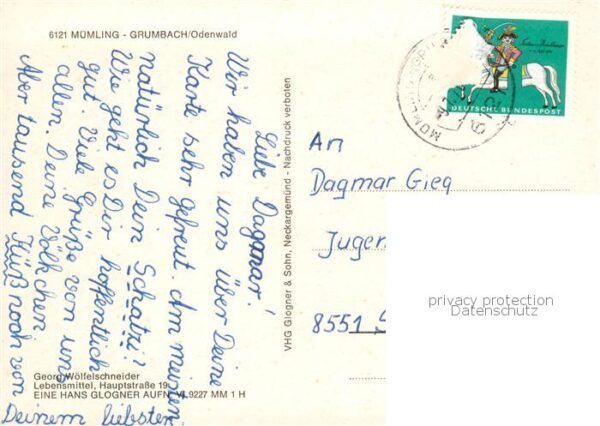 6121 MÜMLING - GRUMBACH/Odenwald
Liebe Dagmar!
Wir haben uns über Deine
Karte sehr gefreut. Am meisten
natürlich Dein Schatzi?
Wie geht es Dir hoffentlich
gut. Viele Grüße von uns
allen. Deine Völkchen
Aber tausend Küß noch von
Deinem liebsten
Georg Wölfelschneider
Lebensmittel, Hauptstraße 19
EINE HANS GLOGNER AUFN. 9227 MM 1 H
VHG Glogner & Sohn, Neckargemünd - Nachdruck verboten
DEUTSCHE BUNDESPOST
An
Dagmar Gieg
Jugen
8551
privacy protection
Datenschutz